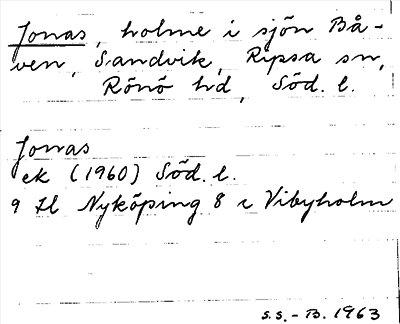 Jonas, holme i sjön Bå-
ven, Sandvik, Ripsa sn,
Rönö hd, Söd. l.
Jonas
ek (1960) Söd. l.
9 Hl Nyköping 8 c Vibyholm
S.S. - B. 1963